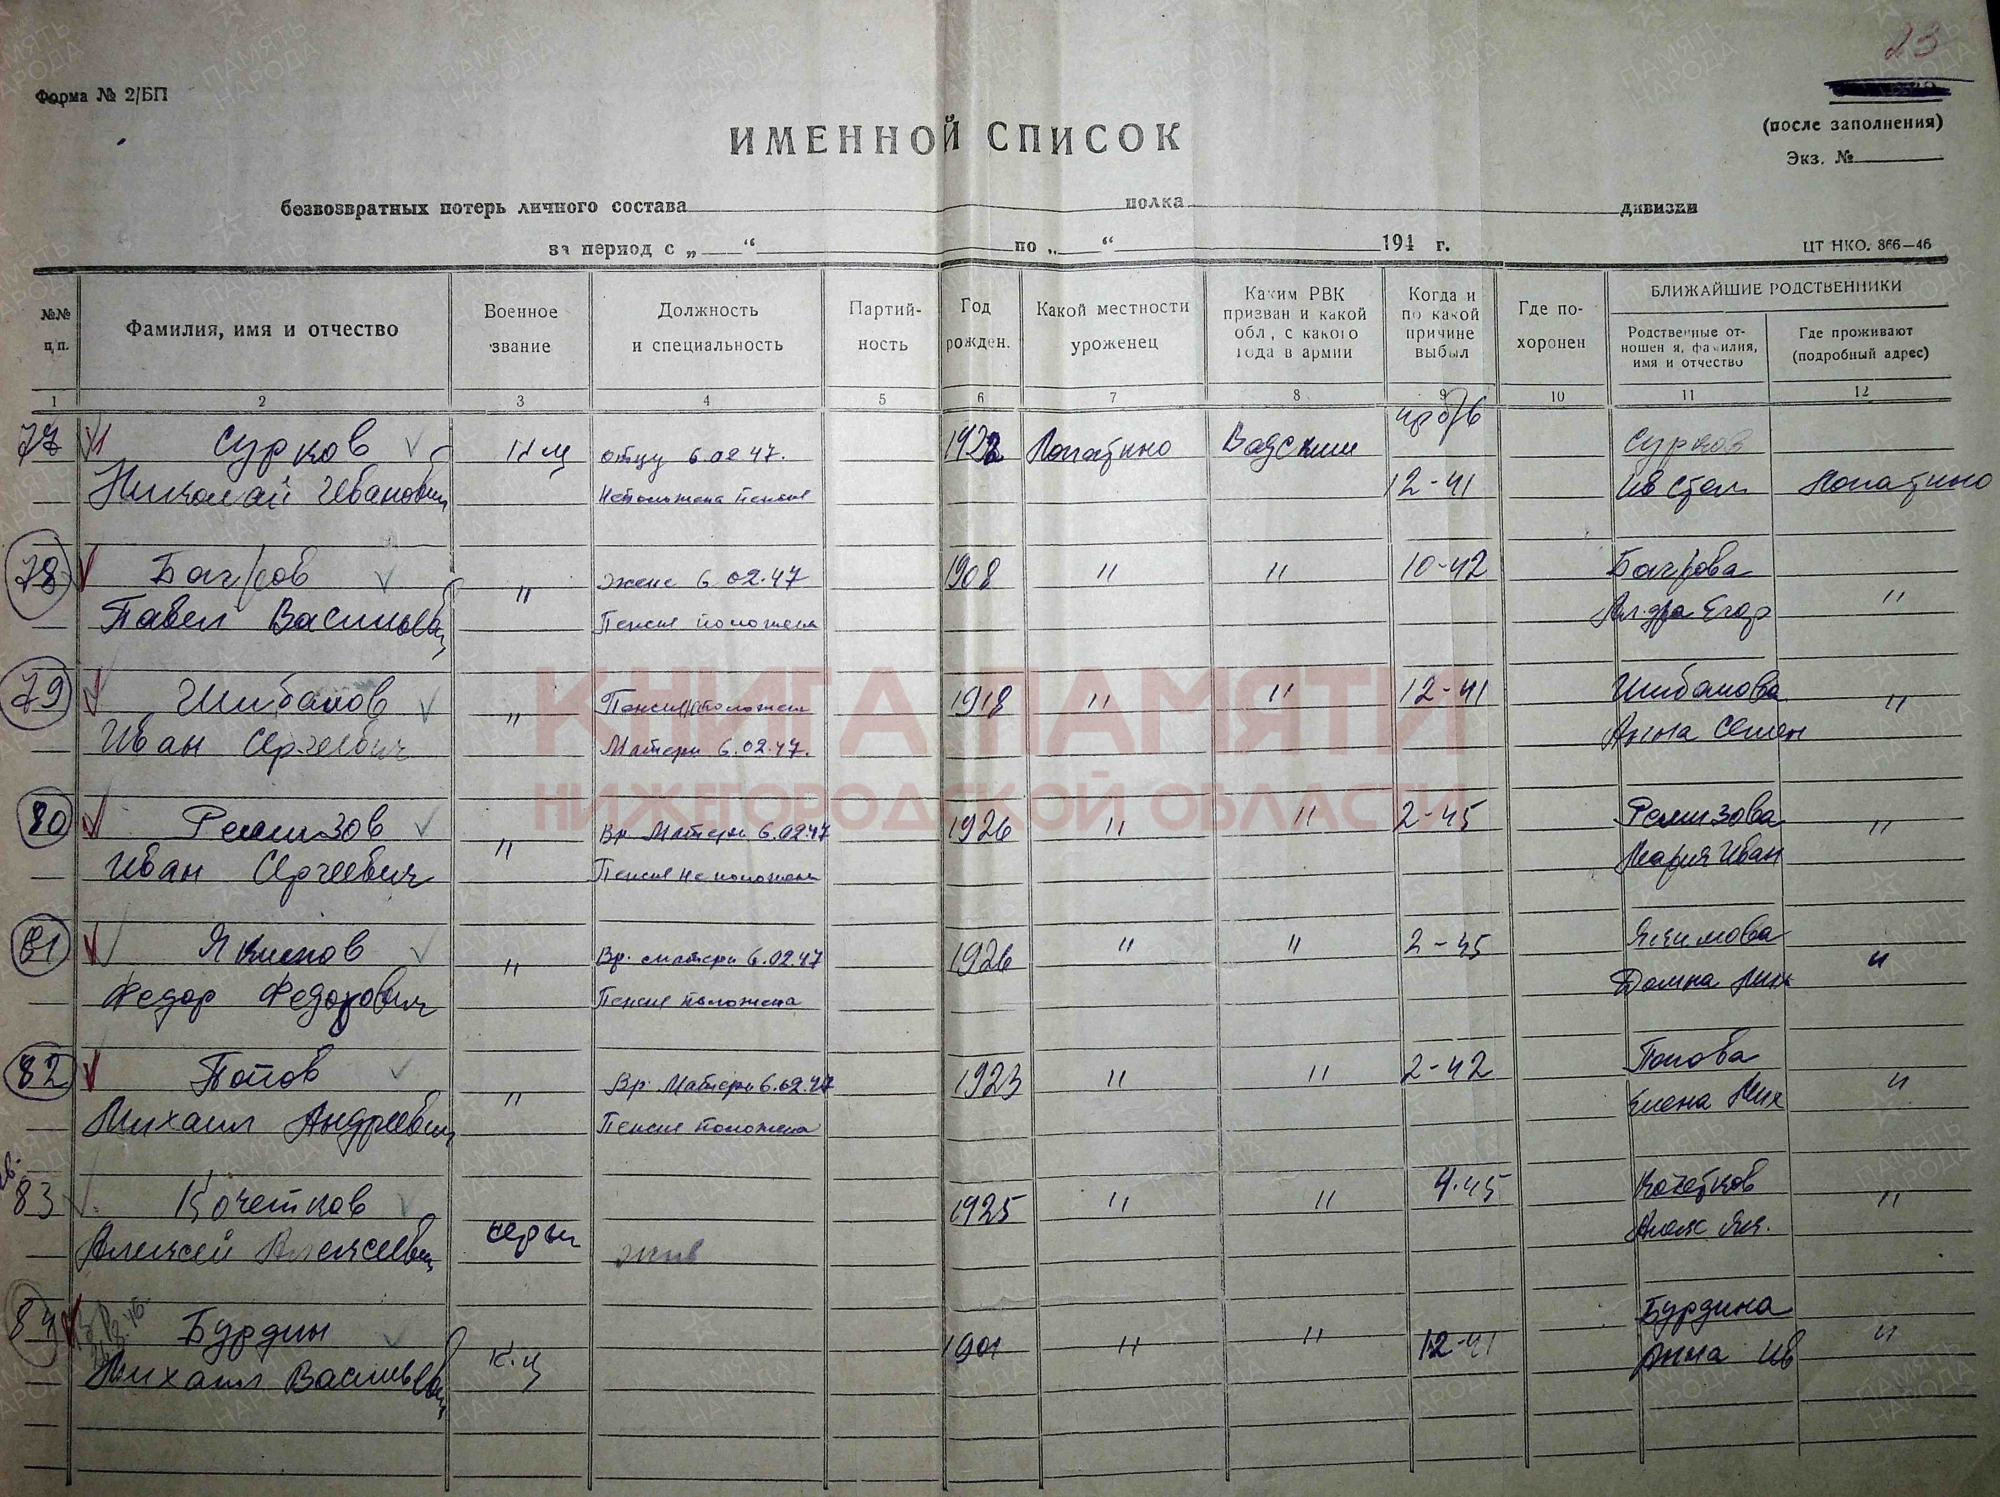 23
Форма № 2/БП
(после заполнения)
Экз. №
ИМЕННОЙ СПИСОК
безвозвратных потерь личного состава полка дивизии
за период с „ “ по „ “ 194 г.
ЦТ НКО. 866—46
№№ п/п.
Фамилия, имя и отчество
Военное звание
Должность и специальность
Партий-ность
Год рожден.
Какой местности уроженец
Каким РВК призван и какой обл, с какого года в армии
Когда и по какой причине выбыл
Где по-хоронен
БЛИЖАЙШИЕ РОДСТВЕННИКИ
Родственные от-ношен я, фамилия, имя и отчество
Где проживают (подробный адрес)
1 2 3 4 5 6 7 8 9 10 11 12
77 Сурков К-ц отцу 6 02 47. 1922 Лопатино Вадским проп/в Сурков
Николай Иванович Неположена Пенсия 12-41 Ив Степ Лопатино
78 Багров " жене 6.02.47 1908 " " 10-42 Багрова "
Павел Васильевич Пенсия положена Ал-дра Егор
79 Шибанов " Пенсия положена 1918 " " 12-41 Шибанова "
Иван Сергеевич Матери 6.02.47. Анна Семен
80 Ремизов " Вр. Матери 6.02.47 1926 " " 2-45 Ремизова "
Иван Сергеевич Пенсия не положена Мария Иван
81 Якимов " Вр. матери 6.02.47 1926 " " 2-45 Якимова "
Федор Федорович Пенсия положена Домна Мих
82 Попов " Вр. Матери 6.02.47 1923 " " 2-42 Попова "
Михаил Андреевич Пенсия положена Елена Мих
83 Кочетков серж 1925 " " 4.45 Кочетков "
Алексей Алексеевич жив Алек Як.
84 Бурдин К.ц 1901 " " 12-41 Бурдина "
Михаил Васильевич Анна Ив
КНИГА ПАМЯТИ
НИЖЕГОРОДСКОЙ ОБЛАСТИ
ПАМЯТЬ НАРОДА